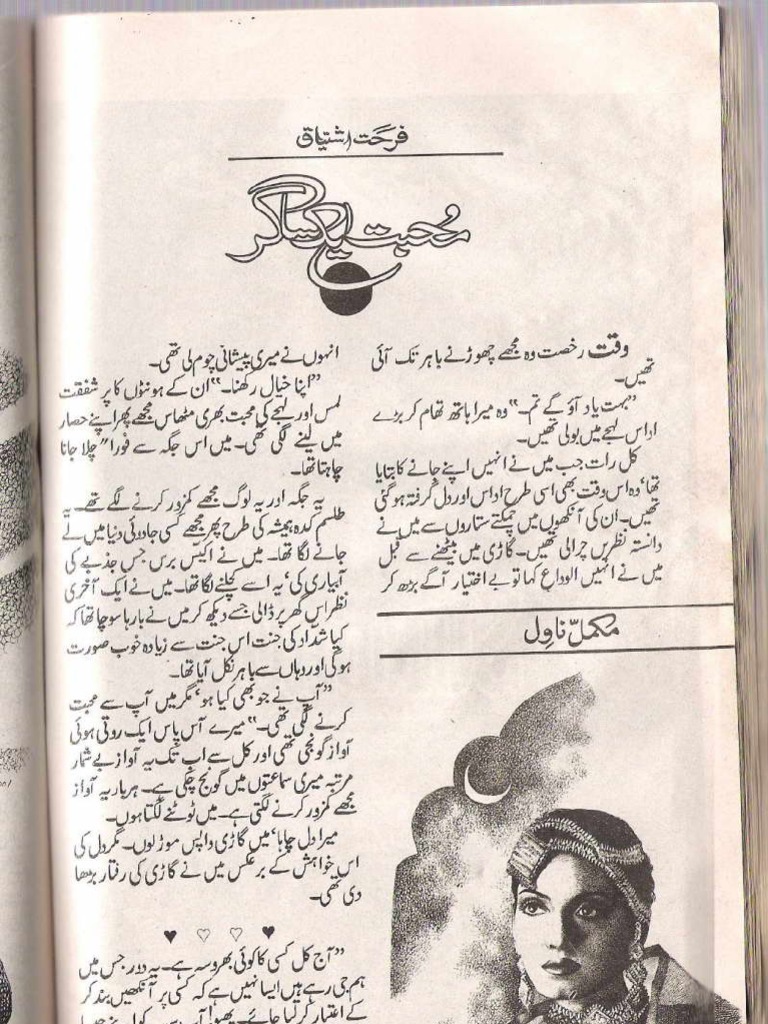 فرحت اشتیاق
محبت ایک ساگر
وقت رخصت وہ مجھے چھوڑنے باہر تک آئی
تھیں۔
”بہت یاد آؤ گے تم۔“ وہ میرا ہاتھ تھام کر بڑے
اداس لہجے میں بولی تھیں۔
کل رات جب میں نے انہیں اپنے جانے کا بتایا
تھا‘ وہ اس وقت بھی اسی طرح اداس اور دل گرفتہ ہو گئی
تھیں۔ ان کی آنکھوں میں چمکتے ستاروں سے میں نے
دانستہ نظریں چرالی تھیں۔ گاڑی میں بیٹھنے سے قبل
میں نے انہیں الوداع کہا تو بے اختیار آگے بڑھ کر
مکمل ناول
انہوں نے میری پیشانی چوم لی تھی۔
”اپنا خیال رکھنا۔“ ان کے ہونٹوں کا پر شفقت
لمس اور لہجے کی محبت بھری مٹھاس مجھے پھر اپنے حصار
میں لینے لگی تھی۔ میں اس جگہ سے فورا“ چلا جانا
چاہتا تھا۔
یہ جگہ اور یہ لوگ مجھے کمزور کرنے لگے تھے۔ یہ
طلسم کدہ ہمیشہ کی طرح پھر مجھے کسی جادوئی دنیا میں لے
جانے لگا تھا۔ میں نے اکیس برس جس جذبے کی
آبیاری کی‘ یہ اسے کچلنے لگا تھا۔ میں نے ایک آخری
نظر اس گھر پر ڈالی جسے دیکھ کر میں نے بارہا سوچا تھا کہ
کیا شداد کی جنت اس جنت سے زیادہ خوب صورت
ہوگی اور وہاں سے باہر نکل آیا تھا۔
”آپ نے جو بھی کیا ہو‘ مگر میں آپ سے محبت
کرنے لگی تھی۔“ میرے آس پاس ایک روتی ہوئی
آواز گونجی تھی اور کل سے اب تک یہ آواز بے شمار
مرتبہ میری سماعتوں میں گونج چکی ہے۔ ہر بار یہ آواز
مجھے کمزور کرنے لگتی ہے۔ میں ٹوٹنے لگتا ہوں۔
میرا دل چاہا‘ میں گاڑی واپس موڑ لوں۔ مگر دل کی
اس خواہش کے برعکس میں نے گاڑی کی رفتار بڑھا
دی تھی۔
”آج کل کسی کا کوئی بھروسہ ہے۔ یہ دور جس میں
ہم جی رہے ہیں ایسا نہیں ہے کہ کسی پر آنکھیں بند کر
کے اعتبار کر لیا جائے۔